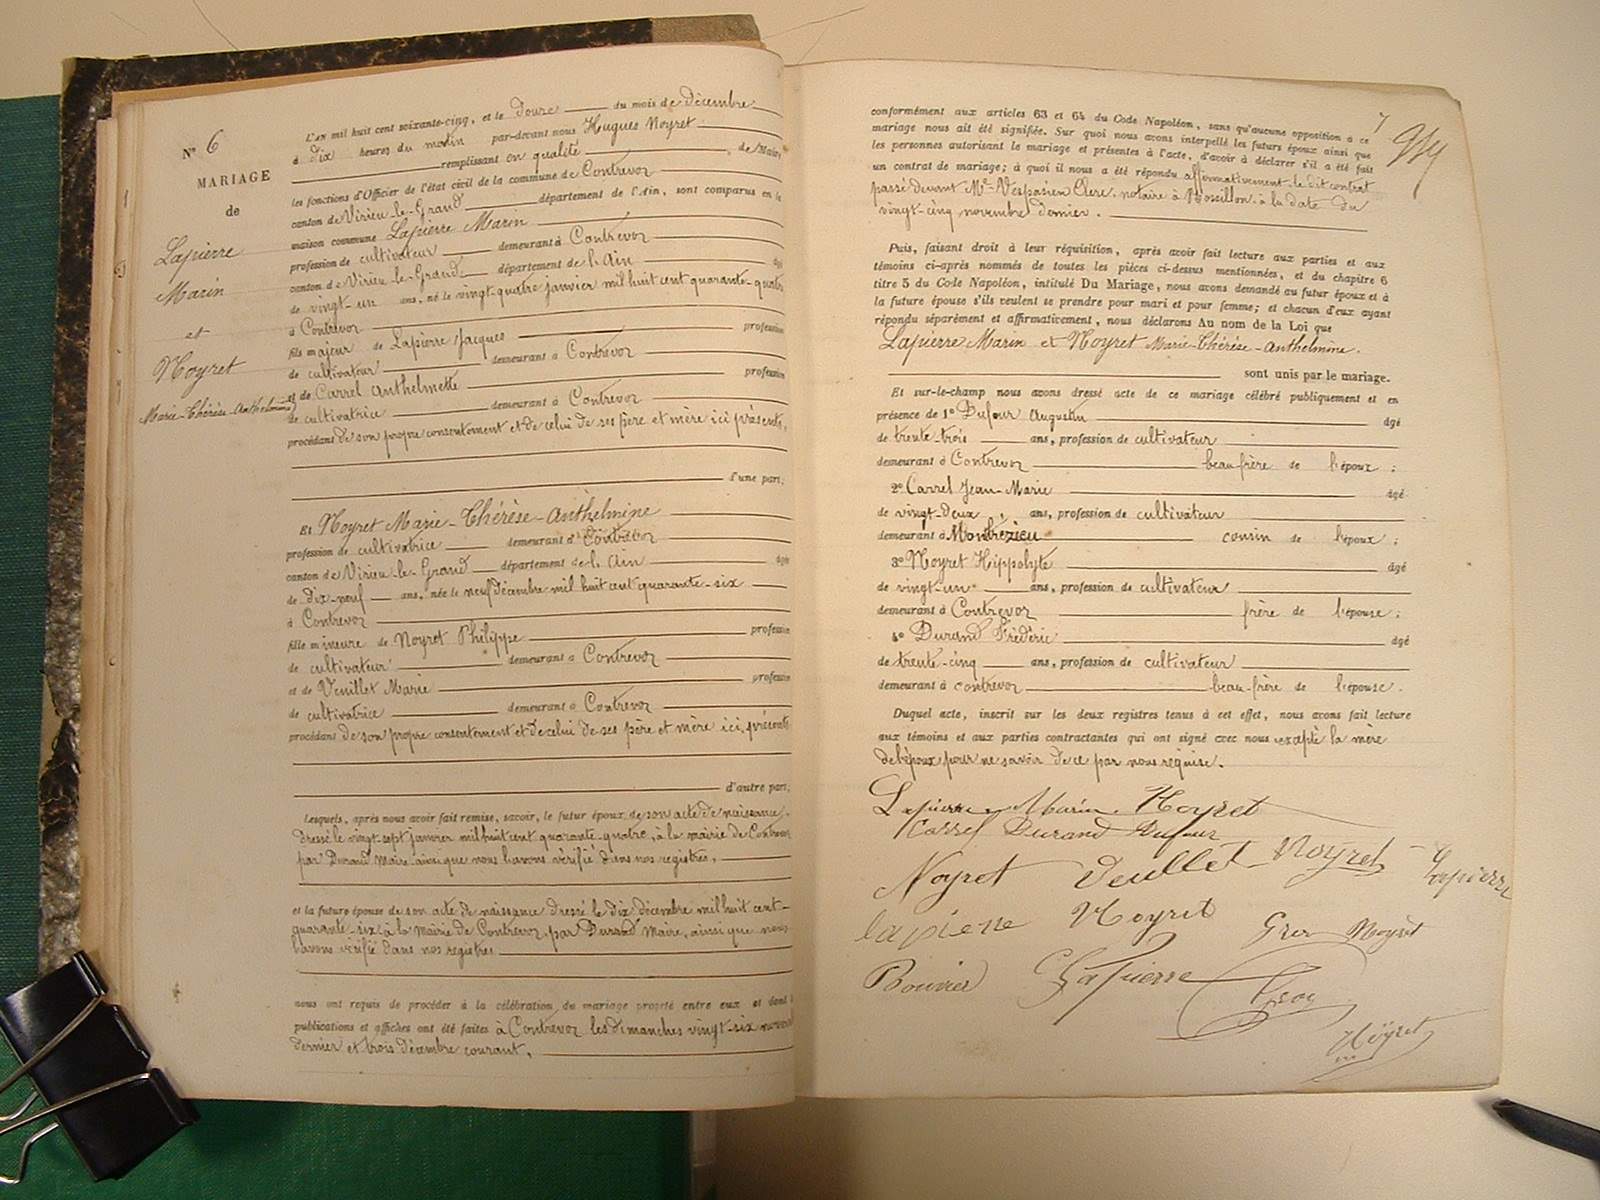 N° 6
MARIAGE
de
Lapierre
Marin
et
Noyret
Marie-Thérèse-Anthelmine
L'an mil huit cent soixante-cinq, et le douze du mois de décembre
à dix heures du matin par-devant nous Hugues Noyret
remplissant en qualité de Maire
les fonctions d'Officier de l'état civil de la commune de Contrevoz
canton de Virieu-le-Grand département de l'Ain, sont comparus en la
maison commune Lapierre Marin
profession de cultivateur demeurant à Contrevoz
canton de Virieu-le-Grand département de l'Ain âgé
de vingt-un ans, né le vingt-quatre janvier mil huit cent quarante-quatre
à Contrevoz
fils majeur de Lapierre Jacques profession
de cultivateur demeurant à Contrevoz
et de Carrel Anthelmette profession
de cultivatrice demeurant à Contrevoz
procédant de son propre consentement et de celui de ses père et mère ici présents,
d'une part;
Et Noyret Marie-Thérèse-Anthelmine
profession de cultivatrice demeurant à Contrevoz
canton de Virieu-le-Grand département de l'Ain âgée
de dix-neuf ans, née le neuf décembre mil huit cent quarante-six
à Contrevoz
fille mineure de Noyret Philippe profession
de cultivateur demeurant à Contrevoz
et de Veuillet Marie profession
de cultivatrice demeurant à Contrevoz
procédant de son propre consentement et de celui de ses père et mère ici présents
d'autre part;
Lesquels, après nous avoir fait remise, savoir, le futur époux de son acte de naissance
dressé le vingt-sept janvier mil huit cent quarante-quatre, à la mairie de Contrevoz
par Durand Maire ainsi que nous l'avons vérifié dans nos registres,
et la future épouse de son acte de naissance dressé le dix décembre mil huit cent-
quarante-six à la Mairie de Contrevoz, par Durand Maire, ainsi que nous
l'avons vérifié dans nos registres
nous ont requis de procéder à la célébration du mariage projeté entre eux et dont l
publications et affiches ont été faites à Contrevoz les dimanches vingt-six novem
dernier et trois décembre courant,
7
conformément aux articles 63 et 64 du Code Napoléon, sans qu'aucune opposition à ce
mariage nous ait été signifiée. Sur quoi nous avons interpellé les futurs époux ainsi que
les personnes autorisant le mariage et présentes à l'acte, d'avoir à déclarer s'il a été fait
un contrat de mariage; à quoi il nous a été répondu affirmativement le dit contrat
passé devant Me Vespasien Clerc notaire à Rossillon à la date du
vingt-cinq novembre dernier.
Puis, faisant droit à leur réquisition, après avoir fait lecture aux parties et aux
témoins ci-après nommés de toutes les pièces ci-dessus mentionnées, et du chapitre 6
titre 5 du Code Napoléon, intitulé Du Mariage, nous avons demandé au futur époux et à
la future épouse s'ils veulent se prendre pour mari et pour femme; et chacun d'eux ayant
répondu séparément et affirmativement, nous déclarons Au nom de la Loi que
Lapierre Marin et Noyret Marie-Thérèse-Anthelmine.
sont unis par le mariage.
Et sur-le-champ nous avons dressé acte de ce mariage célébré publiquement et en
présence de 1° Dufour Augustin âgé
de trente-trois ans, profession de cultivateur
demeurant à Contrevoz beau frère de l'époux;
2° Carrel Jean-Marie âgé
de vingt-deux ans, profession de cultivateur
demeurant à Montbrézieu cousin de l'époux;
3° Noyret Hippolyte âgé
de vingt-un ans, profession de cultivateur
demeurant à Contrevoz frère de l'épouse;
4° Durand Frédéric âgé
de trente-cinq ans, profession de cultivateur
demeurant à contrevoz beau-frère de l'épouse.
Duquel acte, inscrit sur les deux registres tenus à cet effet, nous avons fait lecture
aux témoins et aux parties contractantes qui ont signé avec nous excepté la mère
de l'époux pour ne savoir de ce par nous requise.
Lapierre Marin Noyret
Carrel Durand Dufour
Noyret Veuillet Noyret Lapierre
lapierre Noyret Noyret
Bouvier Lapierre
Noyret